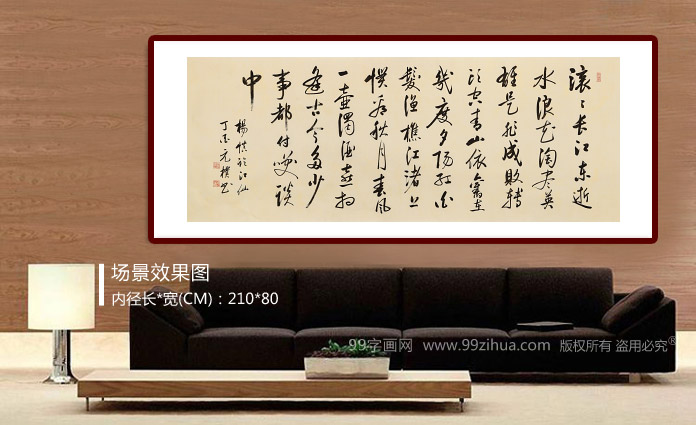 滚〻長江東逝
水浪花淘尽英
雄是非成敗轉
頭空青山依舊在
幾度夕陽紅白
髮漁樵江渚上
慣看秋月春風
一壺濁酒喜相
逢古今多少
事都付笑談
中
楊慎臨江仙
丁酉元樸書
场景效果图
内径长*宽(CM)：210*80
99字画网 www.99zihua.com 版权所有 盗用必究®